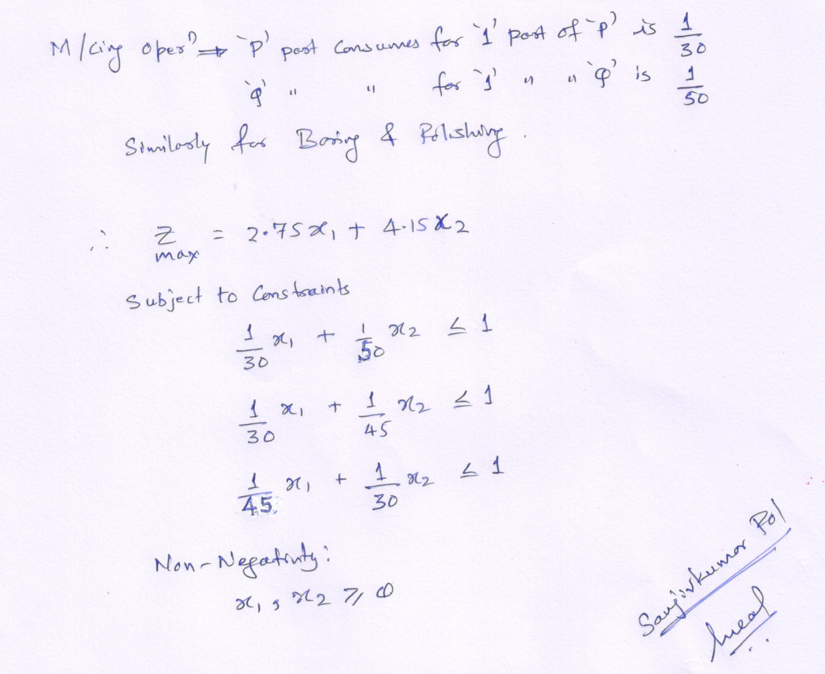 M/cing oper^n ⇒ 'P' part consumes for '1' part of 'P' is 1/30
'Q' " " for '1' " " 'Q' is 1/50
Similarly for Boring & Polishing.
∴ Z max = 2.75x₁ + 4.15x₂
Subject to Constraints
1/30 x₁ + 1/50 x₂ ≤ 1
1/30 x₁ + 1/45 x₂ ≤ 1
1/45 x₁ + 1/30 x₂ ≤ 1
Non-Negativity:
x₁, x₂ ≥ 0
Sanjivkumar Pol